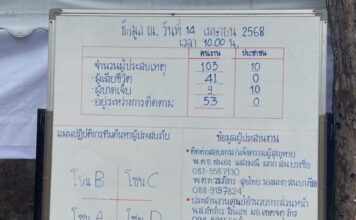 ข้อมูล ณ. วันที่ 14 เมษายน 2568
เวลา 10.00 น.
คนงาน ประชาชน
-จำนวนผู้ประสบเหตุ 103 10
-ผู้เสียชีวิต 41 0
-ผู้บาดเจ็บ 9 10
-อยู่ระหว่างการติดตาม 53 0
แผนปฏิบัติการทีมค้นหาผู้ประสบภัย
ข้อมูลผู้ประสานงาน
•ติดต่อสอบถาม/แจ้งตามผู้สูญหาย
081-5587130
088-9197824
โซน B โซน C
โซน A โซน D